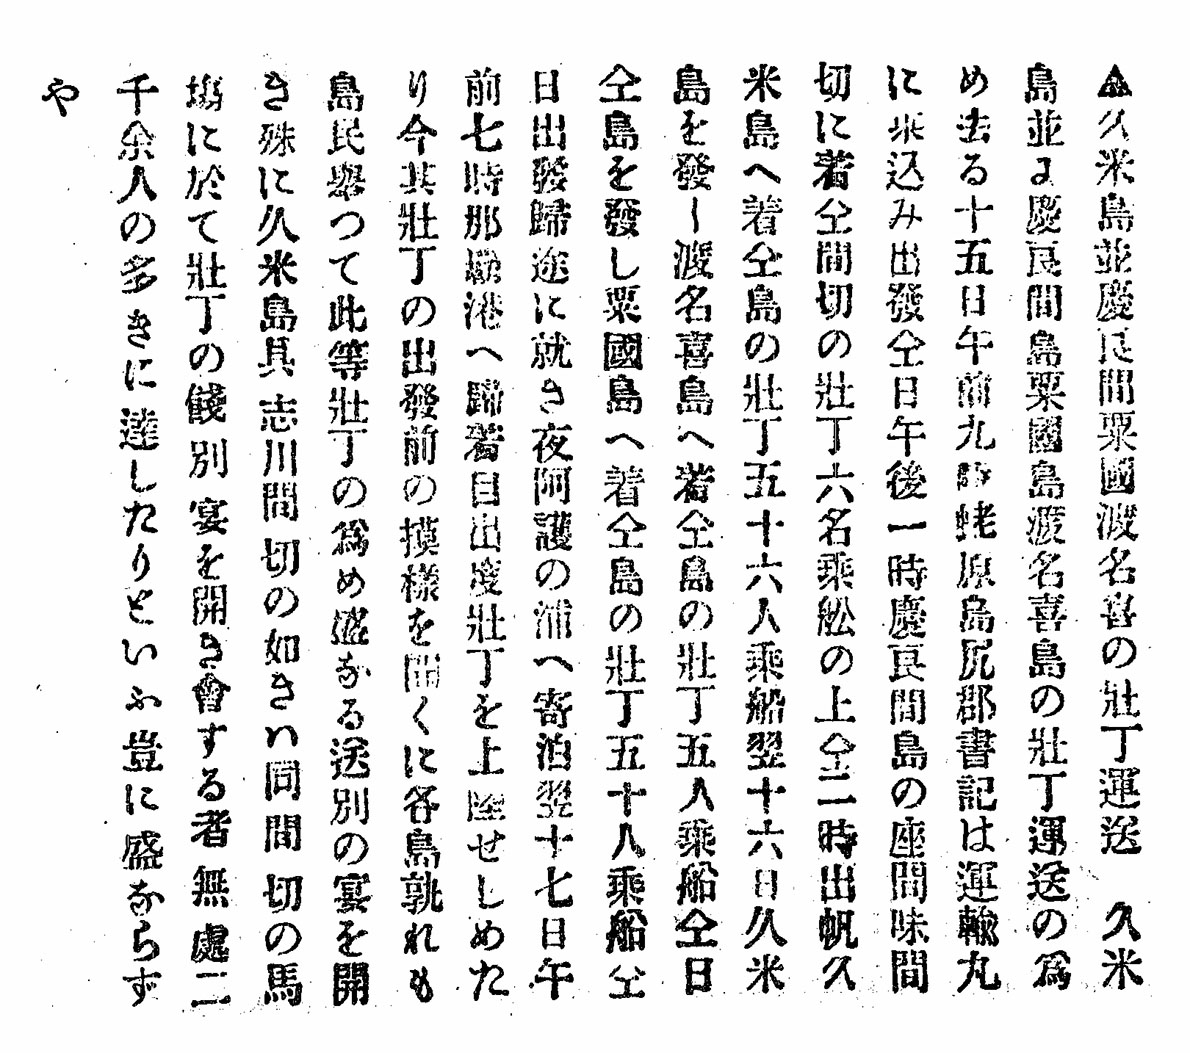 ▲久米島並慶良間粟國渡名喜の壯丁運送　久米
島並よ慶良間島粟國島渡名喜島の壯丁運送の爲
め去る十五日午前九時蛯原島尻郡書記は運輸丸
に乘込み出發仝日午後一時慶良間島の座間味間
切に着仝間切の壯丁六名乘舩の上仝二時出帆久
米島へ着仝島の壯丁五十六人乘船翌十六日久米
島を發し渡名喜島へ着仝島の壯丁五人乘船仝日
仝島を發し粟國島へ着仝島の壯丁五十八乘船仝
日出發歸途に就き夜阿護の浦へ寄泊翌十七日午
前七時那覇港へ歸着目出度壯丁を上陸せしめた
り今其壯丁の出發前の摸樣を聞くに各島孰れも
島民舉つて此等壯丁の爲め盛なる送別の宴を開
き殊に久米島具志川間切の如きハ同間切の馬
塲に於て壯丁の餞別宴を開き會する者無慮二
千余人の多きに達したりといふ豈に盛ならず
や